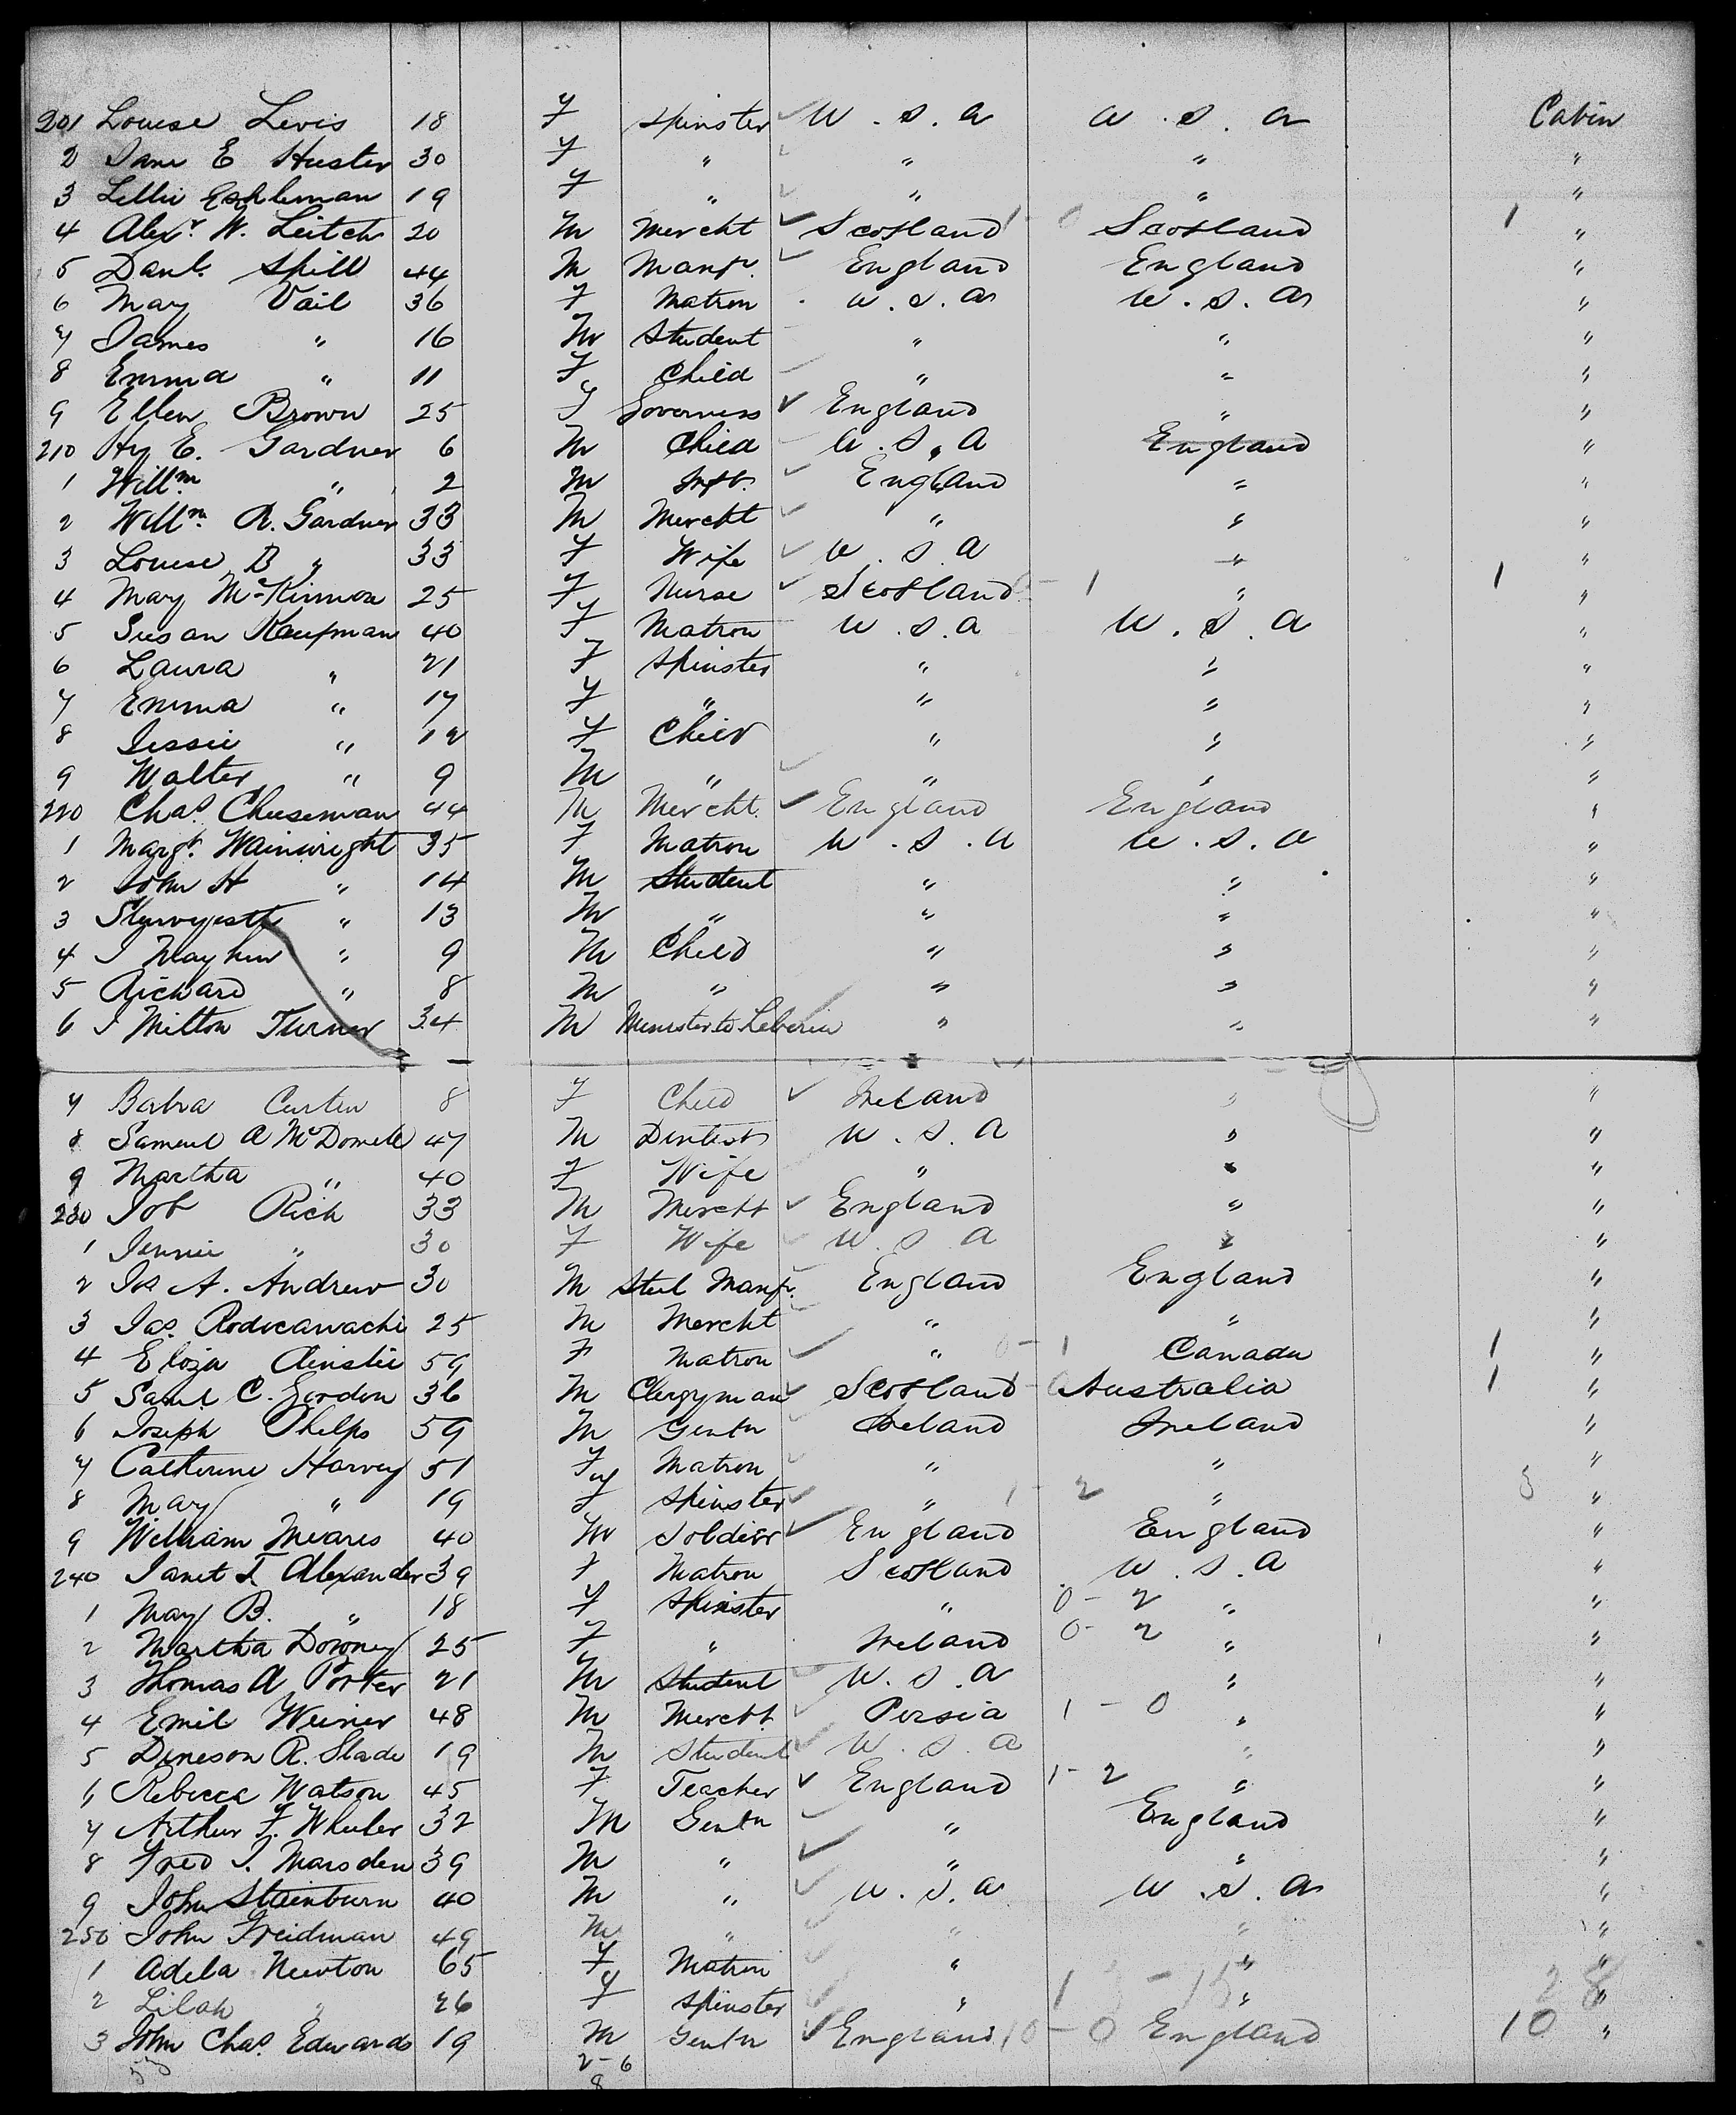 201 Louise Levis 18 F Spinster U.S.A U.S.A Cabin
2 Jane E Huster 30 F " " " "
3 Lellie Eshleman 19 F " " " "
4 Alexr. W. Leitch 20 M Mercht Scotland Scotland 1 "
5 Danl. Spill 44 M Manfr. England England "
6 May Vail 36 F Matron U.S.A U.S.A "
7 James " 16 M Student " " "
8 Emma " 11 F Child " " "
9 Ellen Brown 25 F Governess England " "
210 Hy E. Gardner 6 M Child U.S.A England "
1 Willm " 2 M Inft. England " "
2 Willm. R. Gardner 33 M Mercht " " "
3 Louise B " 33 F Wife U.S.A " "
4 Mary McKinnon 25 F Nurse Scotland 1 " 1 "
5 Susan Kaufman 40 F Matron U.S.A U.S.A "
6 Laura " 21 F Spinster " " "
7 Emma " 17 F " " " "
8 Jessie " 12 F Child " " "
9 Walter " 9 M " " " "
220 Chas. Cheeseman 44 M Mercht. England England "
1 Margt. Wainwright 35 F Matron U.S.A U.S.A "
2 John H " 14 M Student " " "
3 " 13 M " " " "
4 J Mayhew " 9 M Child " " "
5 Richard " 8 M " " " "
6 J Milton Turner 34 M Minister to Liberia " " "
7 Barbra Curten 8 F Child Ireland " "
8 Samuel A McDowell 47 M Dentist U.S.A " "
9 Martha " 40 F Wife " " "
230 Job Rich 33 M Mercht England " "
1 Jennie " 30 F Wife U.S.A " "
2 Jos A. Andrew 30 M Steel Manfr. England England "
3 Jas. Rodocanachi 25 M Mercht " " "
4 Eliza Ainslie 59 F Matron " 0-1 Canada 1 "
5 Saml C. Gordon 36 M Clergyman Scotland 1-0 Australia 1 "
6 Joseph Phelps 59 M Gentn Ireland Ireland "
7 Catherine Harvey 51 F Matron " " "
8 May " 19 F Spinster " 1-2 " 3 "
9 William Meares 40 M Soldier England England "
240 Janet T Alexander 39 F Matron Scotland U.S.A "
1 May B. " 18 F Spinster " 0-2 " "
2 Martha Downey 25 F " Ireland 0-2 " "
3 Thomas A Porter 21 M Student U.S.A " "
4 Emil Weiner 48 M Mercht. Persia 1-0 " "
5 Deneson R. Slade 19 M Student U.S.A " "
6 Rebecca Watson 45 F Teacher England 1-2 " "
7 Arthur F. Wheeler 32 M Gentn " England "
8 Fred J. Marsden 39 M " " " "
9 John Stainburn 40 M " U.S.A U.S.A "
250 John Freidman 49 M " " " "
1 Adela Newton 65 F Matron " " "
2 Lilah " 26 F Spinster " 13-15 " 28 "
3 John Chas. Edwards 19 M Gentn England 10-0 England 10 "
53 2-6
8